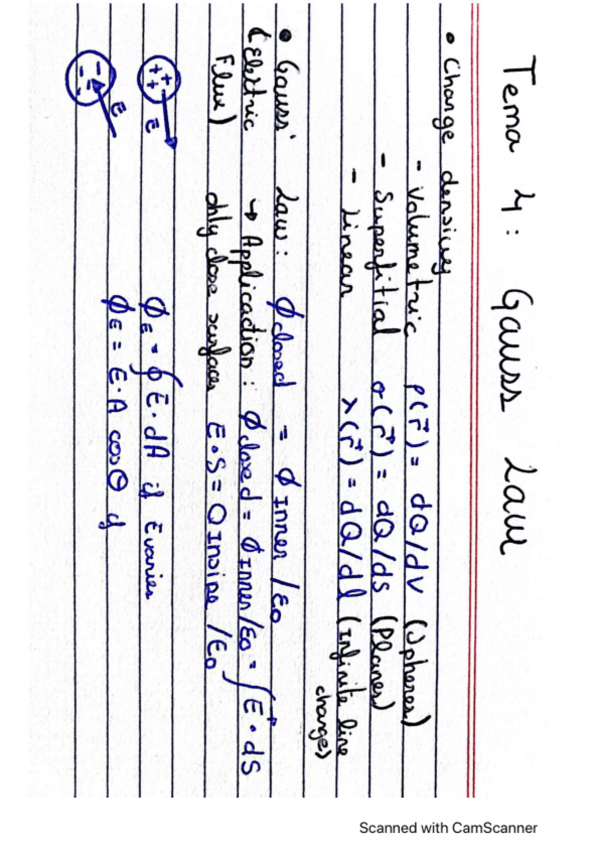 Tema 4: Gauss Law
• Charge densisey
- Volumetric ρ(r⃗) = dQ/dV (Spheres)
- Superfitial σ(r⃗) = dQ/ds (Planes)
- Linear λ(r⃗) = dQ/dl (Infinite line
charges)
• Gauss' Law: ϕ closed = ϕ Inner /ε₀
(Electric → Application: ϕ closed = ϕ Inner/ε₀ = ∫E⃗•dS
Flux) only close surfaces E•S = Q Inside /ε₀
++ ++ E ϕE = ∮E•dA if E varies
- - - E ϕE = E•A cosΘ if
Scanned with CamScanner